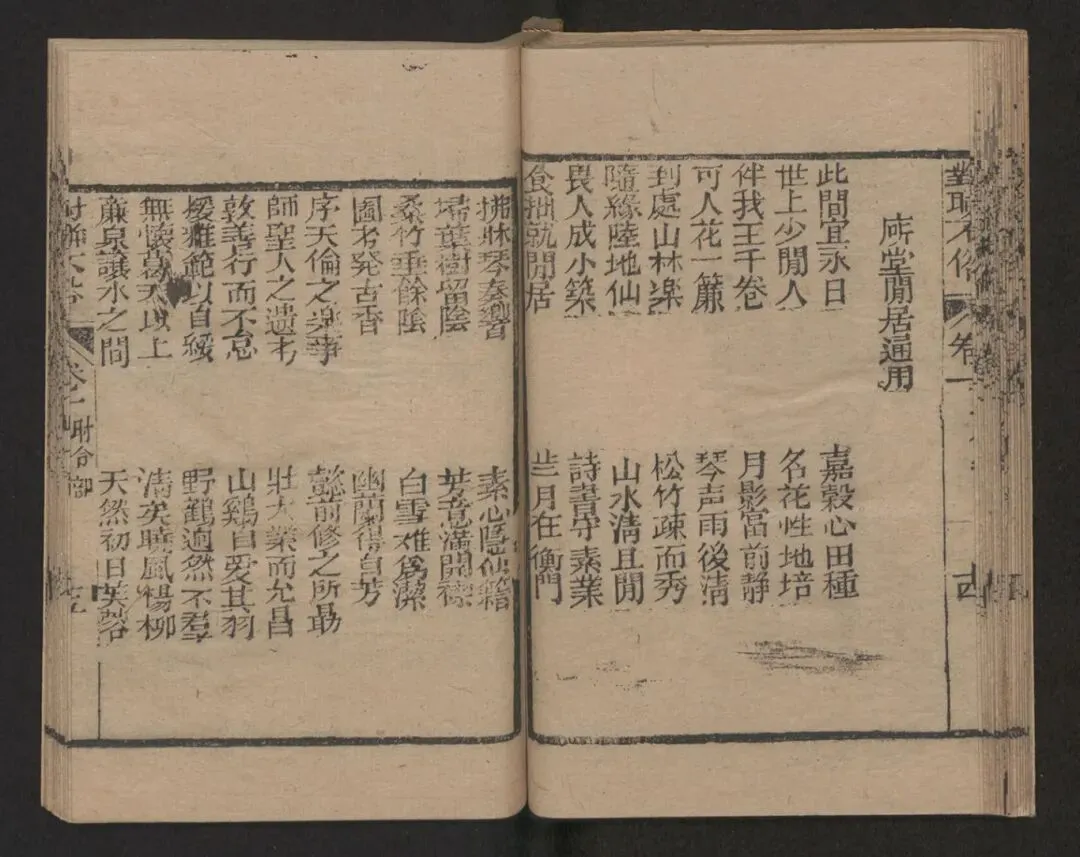 對聯不俗
卷一
厛堂閒居通用
此間宜永日
嘉穀心田種
世上少閒人
名花性地培
伴我王千卷
月影當前静
可人花一簾
琴声雨後清
到處山林楽
松竹疎而秀
隨緣陸地仙
山水淸且閒
畏人成小築
詩書守素業
食拙就閒居
月在衡門
拂牀琴奏響
素心隠仙籍
埽葉樹留陰
芳意滿開襟
桑竹垂餘陰
白雪难爲潔
圖才発古香
幽蘭得自芳
序天倫之楽事
懿前修之所勗
師聖人之遺才
壯大業而允昌
敦善行而不怠
山鷄自愛其羽
援雅範以自綏
野鶴逈然不羣
無懐葛天以上
清矣曉風楊柳
廉泉讓水之間
天然初日芙蓉
卷一